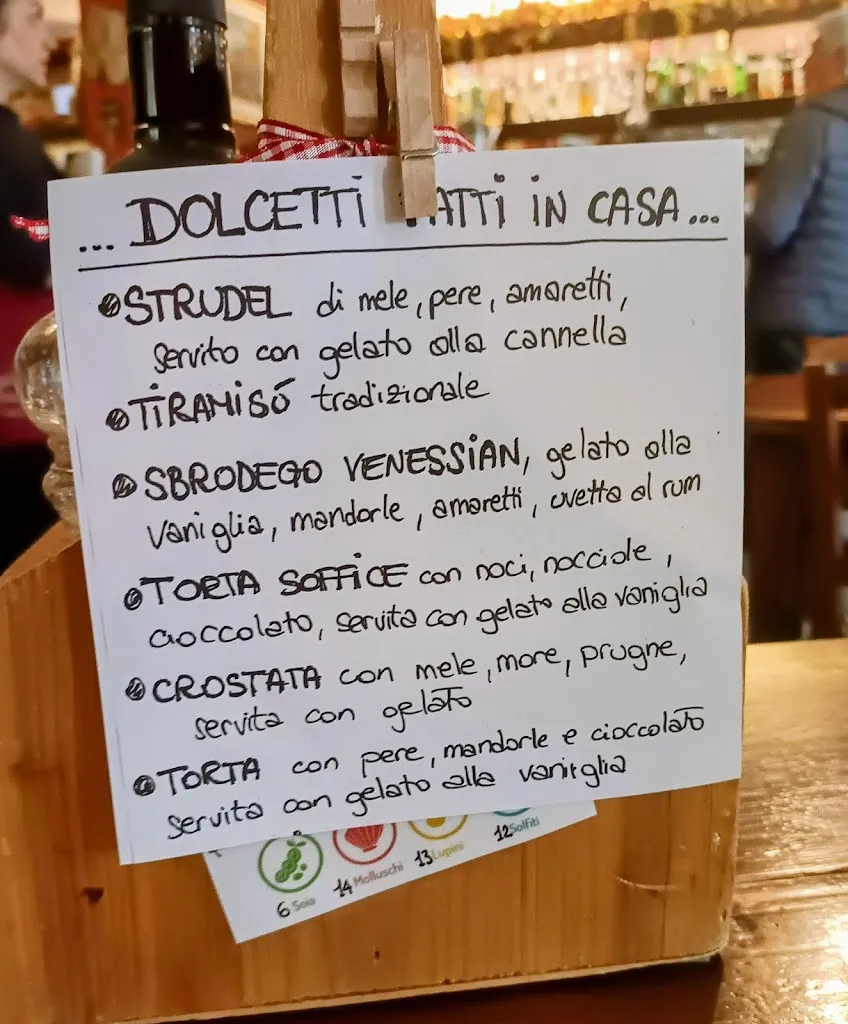 ... DOLCETTI FATTI IN CASA ...
STRUDEL di mele, pere, amaretti,
servito con gelato alla cannella
TIRAMISÚ tradizionale
SBRODEGO VENESSIAN, gelato alla
vaniglia, mandorle, amaretti, uvetta al rum
TORTA SOFFICE con noci, nocciole,
cioccolato, servita con gelato alla vaniglia
CROSTATA con mele, more, prugne,
servita con gelato
TORTA con pere, mandorle e cioccolato
servita con gelato alla vaniglia
6 Soia
14 Molluschi
13 Lupini
12 Solfiti